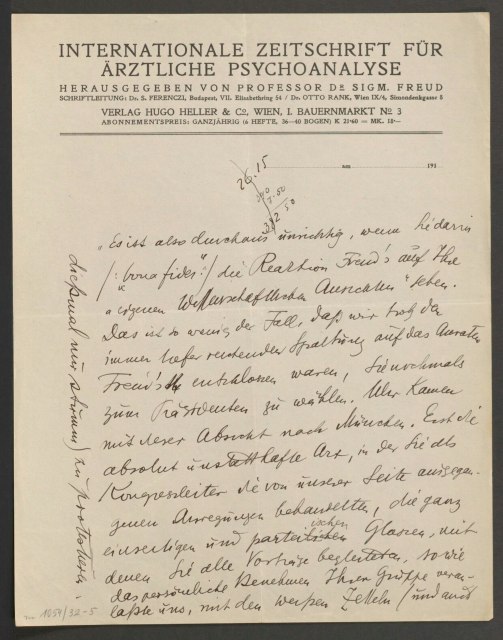 INTERNATIONALE ZEITSCHRIFT FÜR
ÄRZTLICHE PSYCHOANALYSE
HERAUSGEGEBEN VON PROFESSOR DR SIGM. FREUD
SCHRIFTLEITUNG: Dr. S. FERENCZI, Budapest, VII. Elisabethring 54 / Dr. OTTO RANK, Wien IX/4, Simondenkgasse 8
VERLAG HUGO HELLER & Co, WIEN, I. BAUERNMARKT No 3
ABONNEMENTSPREIS: GANZJÄHRIG (6 HEFTE, 36—40 BOGEN) K 21·60 = MK. 18·—
am 191
26.15
7.50
„Es ist also durchaus unrichtig, wenn Sie darin
/: „bona fide“ :/ die Reaktion Freud's auf Ihre
„eigenen Wissenschaftlichen Ansichten“ sehen.
Das ist so wenig der Fall, daß wir trotz der
immer tiefer reichenden Spaltung auf das Anraten
Freud's entschlossen waren, Sie nochmals
zum Präsidenten zu wählen. Wir kamen
mit dieser Absicht nach München. Erst die
absolut unstatthafte Art, in der Sie als
Kongressleiter die von unserer Seite ausgegan-
genen Anregungen behandelten, die ganz
einseitigen und parteiischen Glossen, mit
denen Sie alle Vorträge begleiteten, sowie
das persönliche Benehmen Ihrer Gruppe veran-
laßte uns, mit den weißen Zetteln (und auch
diesmal nur stumm) zu protestieren.
1054/32-5